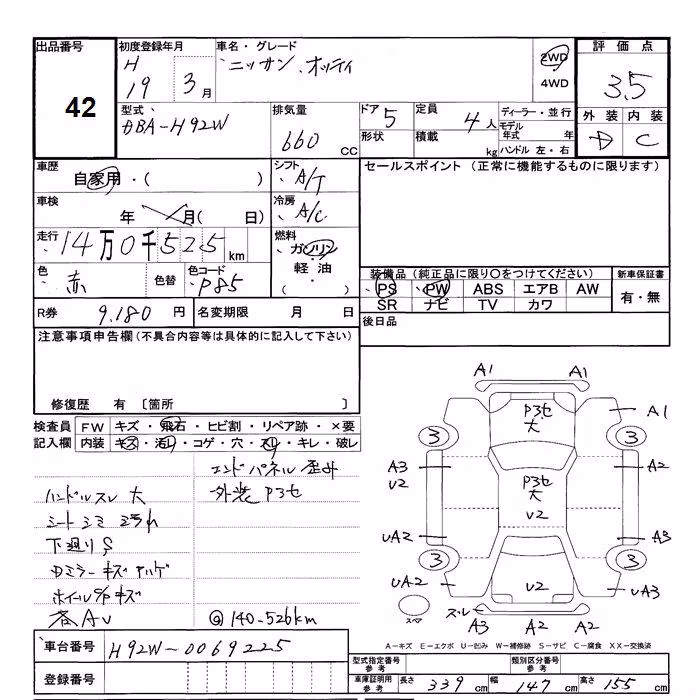 出品番号 初度登録年月 車名・グレード 評価点
42 H 19 3月 ニッサン、オッティ 2WD 4WD 3.5
型式 DBA-H92W 排気量 660 CC ドア 5 形状 定員 4人 積載 kg ディーラー・並行 モデル年式 年 ハンドル 左・右 外装 内装 D C
車歴 自家用・( ) シフト A/T セールスポイント (正常に機能するものに限ります)
車検 年 月( 日) 冷房 A/C
走行 14万0千525km 燃料 ガソリン 軽油 ( )
色 赤 色替 色コード P85 装備品 (純正品に限り〇をつけてください) 新車保証書
PS PW ABS エアB AW 有・無
SR ナビ TV カワ
R券 9.180 円 名変期限 月 日 後日品
注意事項申告欄(不具合内容等は具体的に記入して下さい)
修復歴 有 〔箇所 〕
検査員 FW キズ・飛石・ヒビ割・リペア跡・×要
記入欄 内装 キズ・汚レ・コゲ・穴・スレ・キレ・破レ
エンドパネル 歪外
ハンドルスレ 大 外装 P3セ
シート シミ ヨゴレ
下廻りS
Dミラーキズ ハゲ
ホイールキズ
各AU @140-526km
A1 A1
P3セ 大
A1
3 3
A3 U2 A2
P3セ 大
U2
UA2 A3
3 3
UA2 U2 UA3
スペア スレ A3 A2 A2
A-キズ E-エクボ U-凹み W-補修跡 S-サビ C-腐食 XX-交換済
車台番号 H92W-0069225
登録番号
型式指定番号 参考 類別区分番号 参考
車庫証明用 参考 長さ 339 cm 幅 147 cm 高さ 155 cm